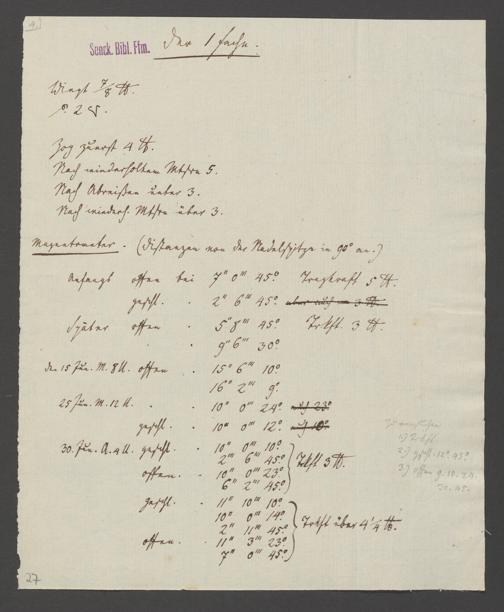 4.
Senck. Bibl. Ffm.
der 1 fache.
Wiegt 7/8 ℔.
2
Zog zuerst 4 ℔.
Nach wiederholtem 5.
Nach Abreißen über 3.
Nach wiederh. über 3.
Magnetometer. (Distanzen von der Nadelspitze in 90° an.)
Anfangs offen bei 7" 0"' 45° Tragkraft 5 ℔.
geschl. . 2" 6"' 45°
Später offen . 5" 8"' 45° Trkft. 3 ℔.
. 9" 6"' 30°
den 15 Jun. M. 8 U. offen . 15" 6"' 10°
16" 2"' 9°
25 Jun. M. 12 U. . . 10" 0"' 24°
geschl. . 10" 0"' 12°
30. Jun. A. 4 U. geschl. . 10" 0"' 10°
2" 6"' 45° Trkft 3 ℔.
offen. . 10" 0"' 23°
6" 2"' 45°
geschl. . 11" 10"' 10°
10" 0"' 14°
2" 11"' 45° Trkft über 4 1/4 ℔.
offen. . 11" 3"' 23°
7" 0"' 45°
1) Trkft.
2) geschl. 12. 45.
3) offen 9. 10. 24.
30. 45.
27